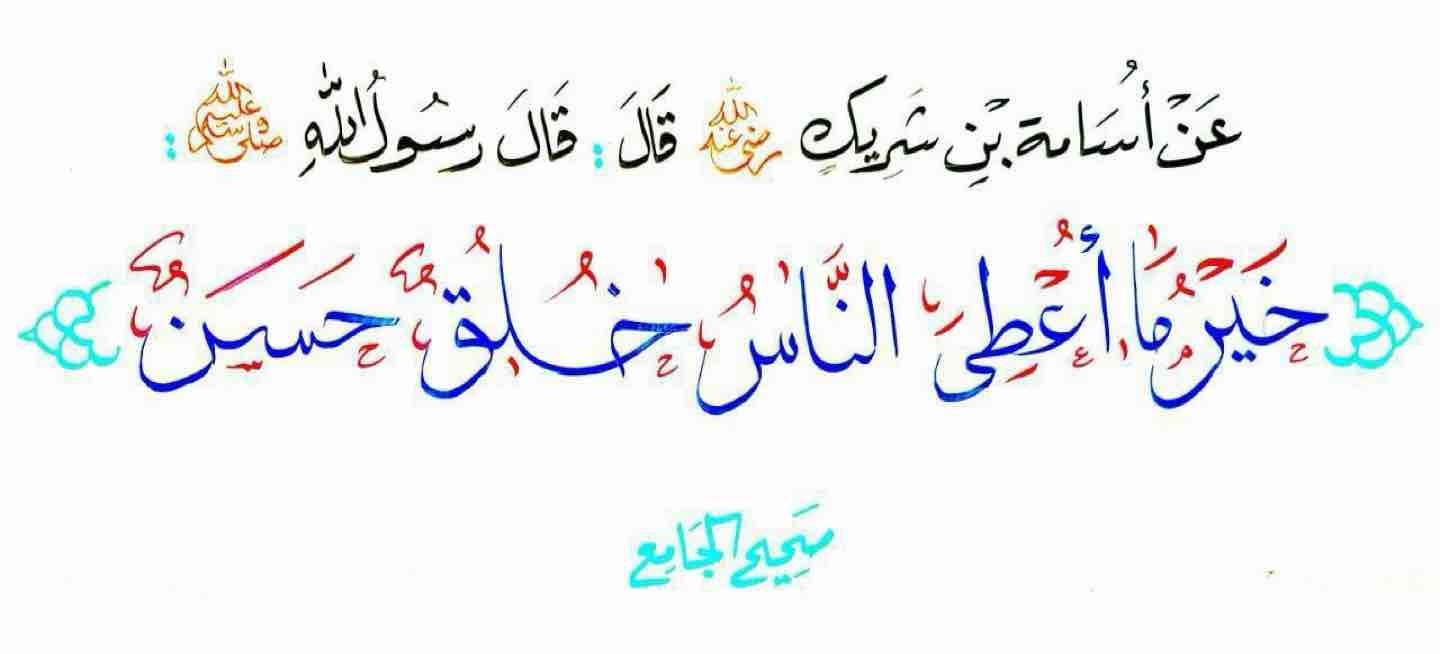 عَنْ أُسَامة بْنِ شَرِيكٍ رضي الله عنه قَالَ : قَالَ رسُولُ اللّٰهِ صلى الله عليه وسلم :
خَيْرُ مَا أُعْطِيَ النَّاسُ خُلُقٌ حَسَنٌ
صَحِيح الجَامِع